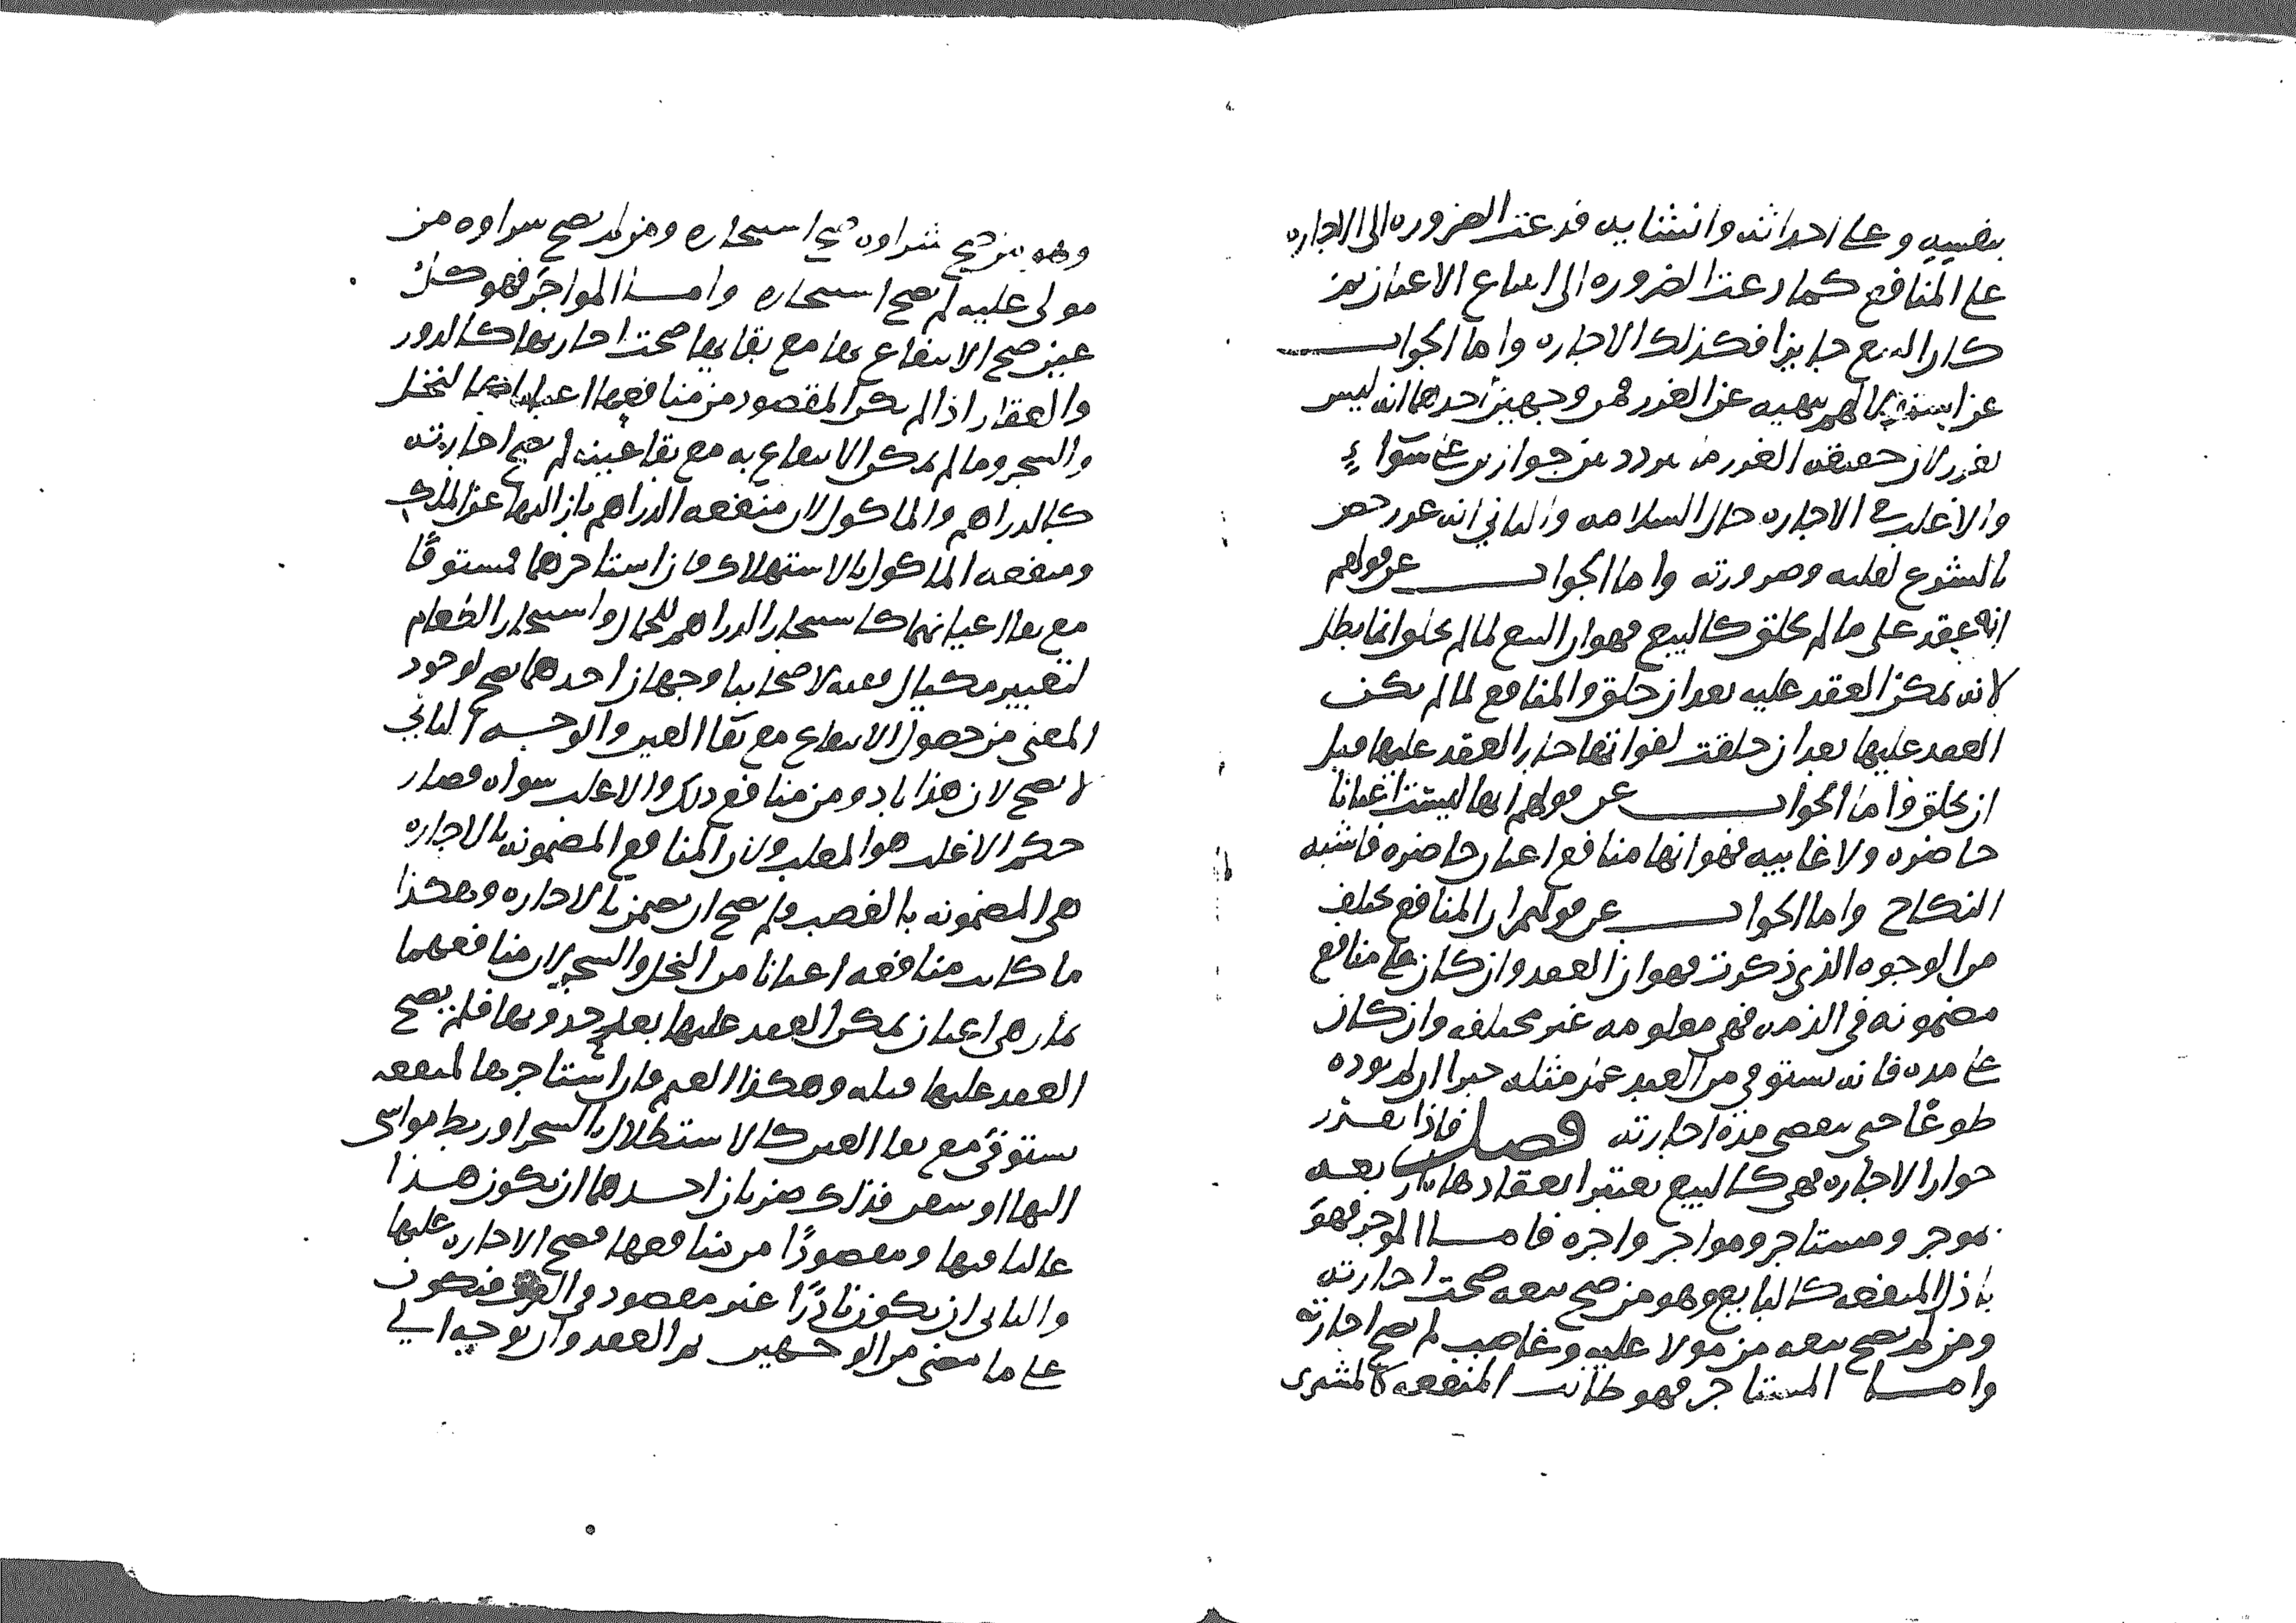 بنفسه وعلى احداثه وانشايه فدعت الضروره الى الاجاره
على المنافع كما دعت الضروره الى ابتياع الاعيان
كان البيع جايزا فكذلك الاجاره واما الجواب
عن نهيه عن الغرر فمن وجهين احدهما انه ليس
بغرر لان حقيقه الغرر ما تردد بين جوازين على سواءٍ
والاغلب في الاجاره حال السلامه والثاني انه غرر خص
بالشرع لغلبه وضرورته واما الجواب عن قولهم
انه عقد على ما لم يخلق كالبيع فهو ان البيع لما لم يخلق انما بطل
لانه يمكن العقد عليه بعد ان خلق والمنافع لما لم يكن
العقد عليها بعد ان خلقت لفواتها جاز العقد عليها قبل
ان يخلق واما الجواب عن قولهم انها ليست اعيانا
حاضره ولا غايبه فهو انها منافع اعيان حاضره فاشبه
النكاح واما الجواب عن قولهم ان المنافع تختلف
من الوجوه الذي ذكرت فهو ان العقد وان كان على منافع
مضمونه في الذمه فهي معلومه غير مختلفه وان كان
على مده فانه يستوفي من العبد عمل مثله جبرا ان لم يوده
طوعًا حتى تنقضي مدة اجارته فصل فاذا تقرر
جواز الاجاره فهي كالبيع تفتقر انعقادها باربعه
بموجر ومستاجر ومواجر واجره فاما الموجر فهو
باذل المنفعه كالبايع وهو من صح بيعه صحت اجارته
ومن لم يصح بيعه من مولا عليه وغاصب لم تصح اجارته
واما المستاجر فهو طالب المنفعه كالمشتري
وهو من صح شراوه صح استيجاره ومن لم يصح شراوه من
مولى عليه لم يصح استيجاره واما المواجر فهو كل
عين صح الانتفاع بها مع بقايها صحت اجارتها كالدور
والعقار اذا لم يكن المقصود من منافعها اعيانا كالنخل
والشجر وما لم يمكن الانتفاع به مع بقا عينه لم تصح اجارته
كالدراهم والماكول لان منفعه الدراهم بازالتها عن الملك
ومنفعه الماكول بالاستهلاك فان استاجرهما لمستوفا
مع بقا اعيانهما كاستيجار الدراهم للجمال واستيجار الطعام
لتعيير مكيال ففيه لاصحابنا وجهان احدهما يصح لوجود
المعنى من حصول الانتفاع مع بقا العين والوجه الثاني
لا يصح لان هذا نادر من منافع ذلك والاغلب سواه فصار
حكم الاغلب هو المغلب ولان المنافع المضمونه بالاجاره
هي المضمونه بالغصب ولم يصح ان يضمن بالاجاره وهكذا
ما كانت منافعه اعيانا من النخل والشجر لان منافعهما
ثمار هي اعيان يمكن العقد عليها بعد حدوثها فلم يصح
العقد عليها قبله وهكذا الغنم فان استاجرها لمنفعه
يستوفي مع بقا العين كالاستظلال بالشجر او ربط مواشي
اليها او سعر فذلك ضربان احدهما ان يكون هذا
غالبا فيها ومقصودًا من منافعها فتصح الاجاره عليها
والثاني ان يكون نادرًا غير مقصود في العرف فتكون
على ما مضى من الوجهين ثم العقد وان توجه الى